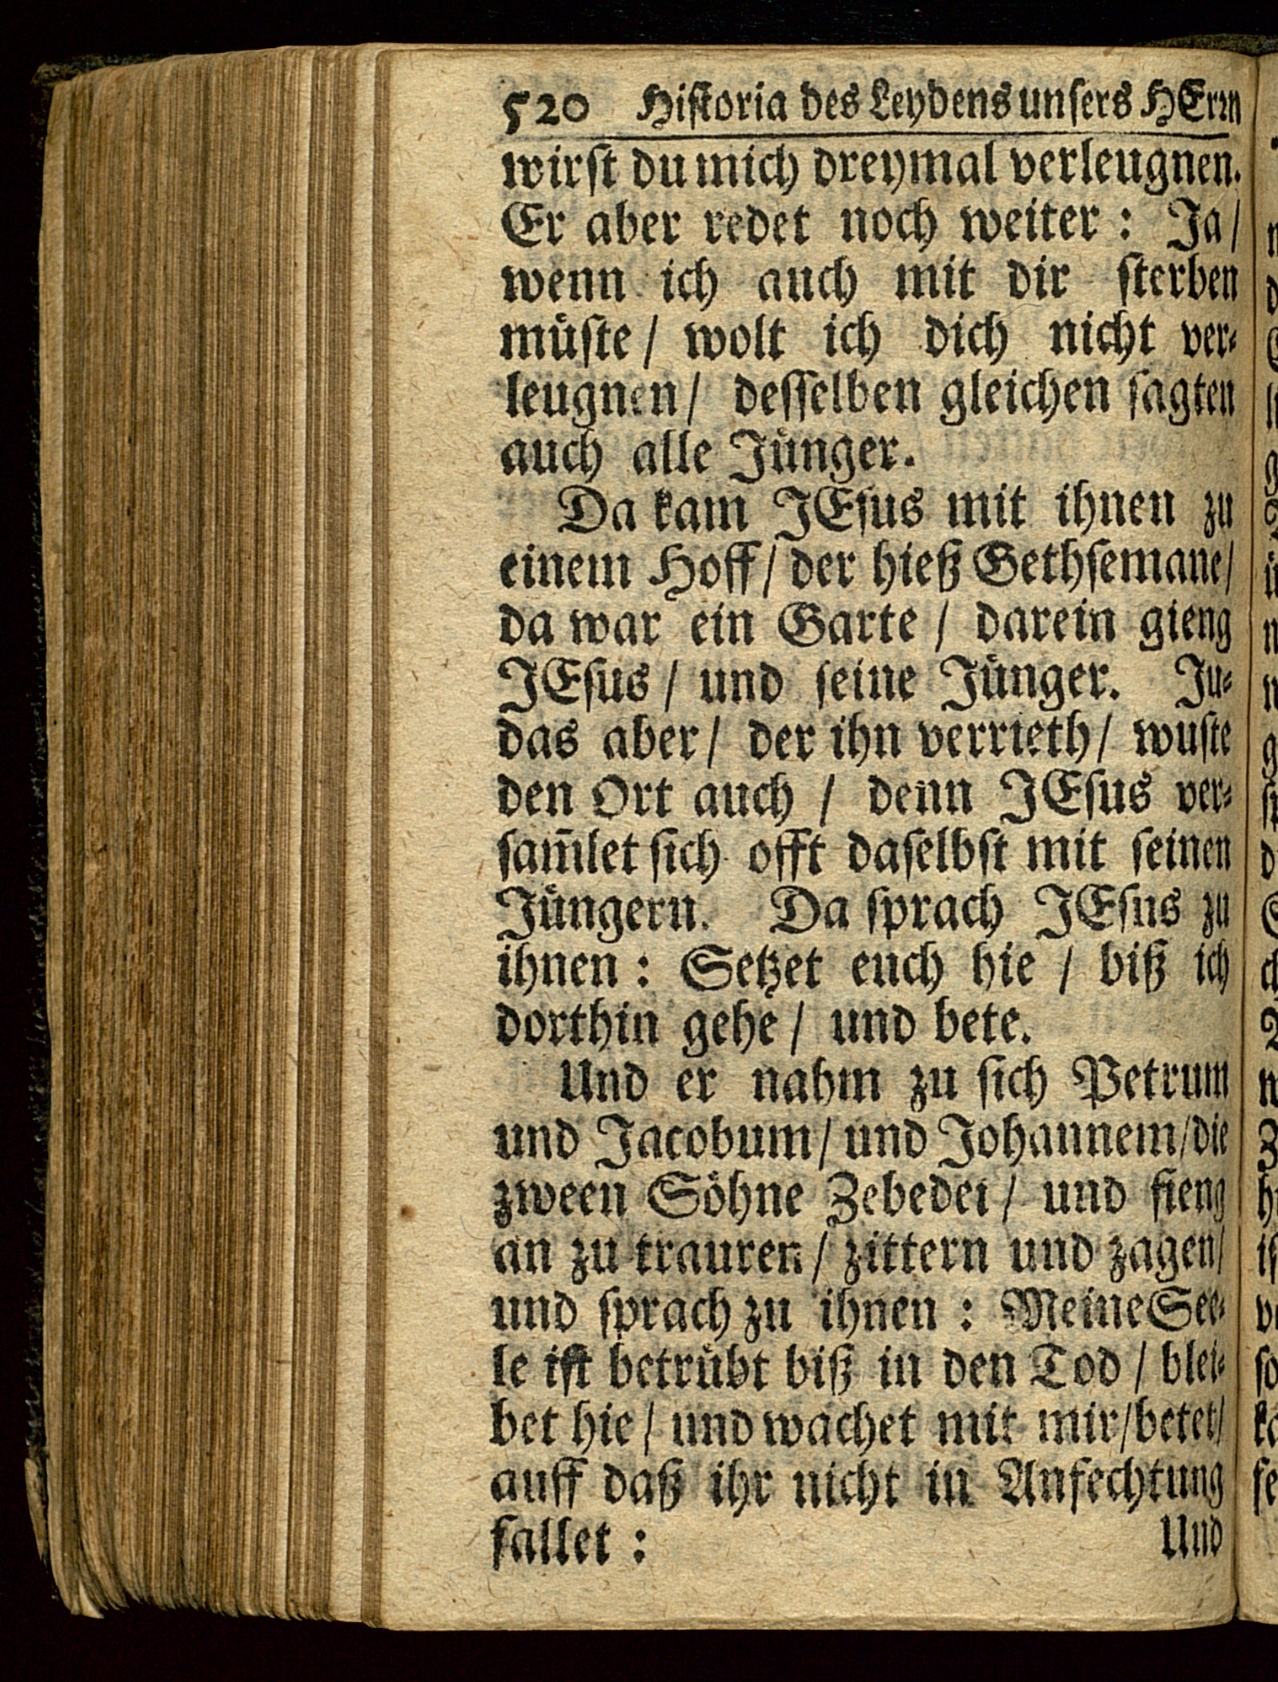 520 Hiſtoria des Leydens unſers HErrn
wirſt du mich dreymal verleugnen.
Er aber redet noch weiter : Ja/
wenn ich auch mit dir ſterben
muͤſte / wolt ich dich nicht ver⸗
leugnen/ deſſelben gleichen ſagten
auch alle Juͤnger.
Da kam JEſus mit ihnen zu
einem Hoff/ der hieß Gethſemane/
da war ein Garte / darein gieng
JEſus / und ſeine Juͤnger. Ju⸗
das aber/ der ihn verrieth/ wuſte
den Ort auch / denn JEſus ver⸗
ſam̃let ſich offt daſelbſt mit ſeinen
Juͤngern. Da ſprach JEſus zu
ihnen : Setzet euch hie / biß ich
dorthin gehe / und bete.
Und er nahm zu ſich Petrum
und Jacobum/ und Johannem/die
zween Soͤhne Zebedei / und fieng
an zu trauren / zittern und zagen/
und ſprach zu ihnen : Meine See⸗
le iſt betruͤbt biß in den Tod / blei⸗
bet hie / und wachet mit mir/betet/
auff daß ihr nicht in Anfechtung
fallet : Und